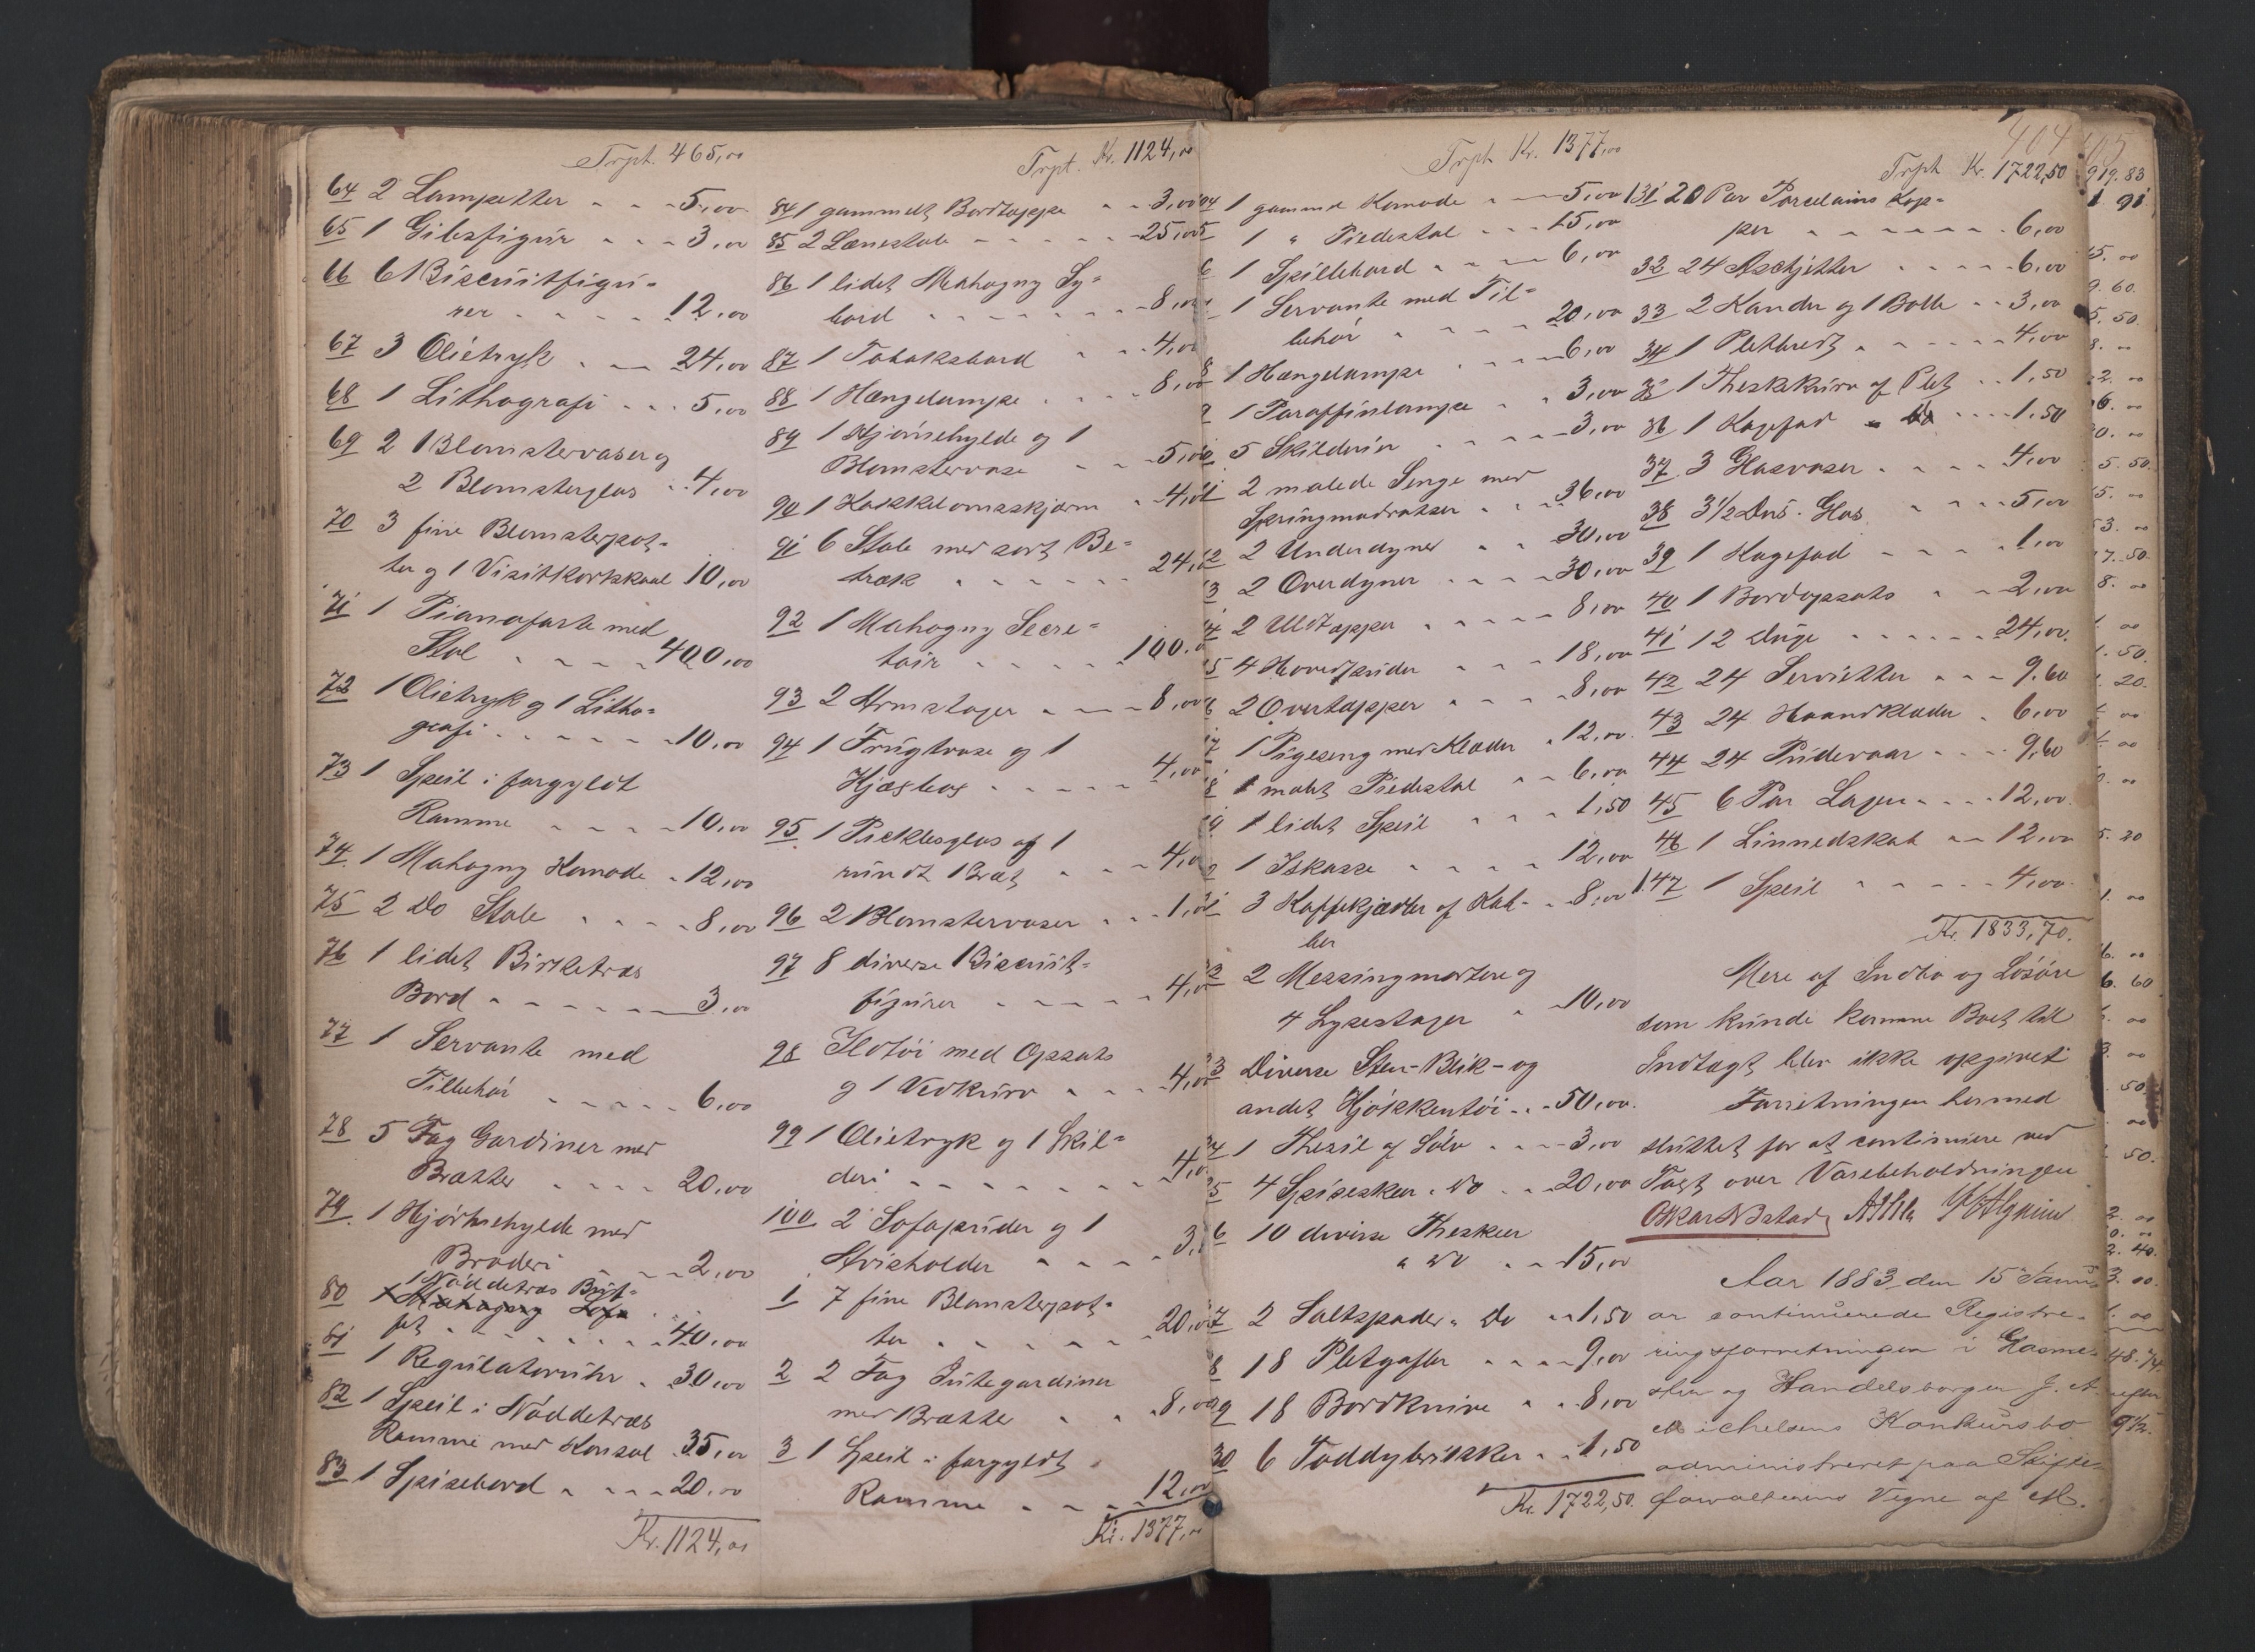 Trpt. 465,00
64 2 Lampetter - - - 5,00
65 1 Gibsfigur - - - 3,00
66 6 Biscuitfigu=
rer - - - - - 12,00
67 3 Olietryk - - 24,00
68 1 Lithografi - - - 5,00
69 2 Blomstervaser og
2 Blomsterglas - 4,00
70 3 fine Blomsterpot=
ter og 1 Visitkortskaal 10,00
71 1 Pianoforte med
Stol - - - - 400,00
72 1 Olietryk og 1 Litho=
grafi - - - - - 10,00
73 1 Speil i forgyldt
Ramme - - - - 10,00
74 1 Mahogny Komode - 12,00
75 2 Do Stole - - - - 8,00
76 1 lidet Birketræs
Bord - - - - - - 3,00
77 1 Servante med
Tilbehør - - - - - 6,00
78 5 Fag Gardiner med
Brætter - - - - 20,00
79 1 Hjørnehylde med
Broderi - - - 2,00
80 1 Nøddetræs Büf=
1 Mahogny Sofa
fet - - - - - - - 40,00
81 1 Regulatoruhr - 30,00
82 1 Speil i Nøddetræs
Ramme med Konsol 35,00
83 1 Spisebord - - - - 20,00
Kr. 1124,00
Trpt. Kr. 1124,00
84 1 gammelt Bordtæppe - - 3,00
85 2 Lænestole - - - - - - 25,00
86 1 lidet Mahogny Sy=
bord - - - - - - - 8,00
87 1 Tobaksbord - - - 4,00
88 1 Hængelampe - - - - 8,00
89 1 Hjørnehylde og 1
Blomstervase - - - 5,00
90 1 Kakkelovnsskjærm - 4,00
91 6 Stole med sort Be=
træk - - - - - - 24,00
92 1 Mahogny Secre=
tair - - - - - 100.00
93 2 Armstager - - - 8,00
94 1 Frugtvase og 1
Hjæs - - - - - 4,00
95 1 Picklesglas og 1
rundt Bræt - - - 4,00
96 2 Blomstervaser - - - 1,00
97 8 diverse Biscuit=
figurer - - - - - 4,00
98 Ildtøi med Opsats
og 1 Vedkurv - - - 4,00
99 1 Olietryk og 1 Skil=
deri - - - - - - - 4,00
100 2 Sofapuder og 1
Avisholder - - - - 3,
1 7 fine Blomsterpot=
ter - - - - - - 20,00
2 2 Fag Jutegardiner
med Brætter - - - 8,00
3 1 Speil i forgyldt
Ramme - - - 12,00
Kr. 1377,00
Trpt Kr. 1377,00
04 1 gammel Komode - - 5,00
5 1 " Piedestal - - - 15,00
6 1 Spillebord - - - - 6,00
1 Servante med Til=
behør - - - - 20,00
8 1 Hængelampe - - - 6,00
9 1 Paraffinlampe - - 3,00
5 Skilderier - - - - 3,00
2 malede Senge med
Springmadratser - - - 36,00
12 2 Underdyner - - 30,00
3 2 Overdyner - - - - 30,00
4 2 Uldtæpper - - - - - 8,00
5 4 Hovedpuder - - - 18,00
6 2 Overtæpper - - - - 8,00
7 1 Pigeseng med Klæder - 12,00
8 1 malet Piedestal - - 6,00
9 1 lidet Speil - - - 1,50
1 Iskasse - - - - 12,00
3 Kaffekjædler af Kob- - 8,00
ber
2 Messingmortere og
4 Lysestager - 10,00
3 Diverse Sten- Blik- og
andet Kjøkkentøi - - 50,00
24 1 Thesil af Sølv - - - 3,00
5 4 Spiseskeer " Do - - 20,00
6 10 diverse Theskeer
" Do - - 15,00
7 2 Saltspader " Do - - 1,50
8 18 Pletgafler - - - - 9,00
9 18 Bordknive - - 8,00
30 6 Toddybrikker - - 1,50
Kr. 1722,50
404
Trpt Kr. 1722,50
131 20 Par Porcelains Kop=
per - - - - - - - 6,00
32 24 Aschjetter - - - - - 6,00
33 2 Kander og 1 Bolle - - 3,00
34 1 Pletbret - - - - - - 4,00
35 1 Theskekurv af Plet - - 1,50
36 1 Kagefad " do - - - - 1,50
37 3 Glasvaser - - - - 4,00
38 3 1/2 Dus. Glas - - - - 5,00
39 1 Kagefad - - - - - 1,00
40 1 Bordopsats - - - 2,00
41 12 Duge - - - - - - 24,00
42 24 Servietter - - - 9,60
43 24 Haandklæder - 6,00
44 24 Pudevaar - - - - 9,60
45 6 Par Lagen - - - - 12,00
46 1 Linnedskab - - 12,00
147 1 Speil - - - - - - 4,00
Kr. 1833,70.
Mere af Indbo og Løsøre
som kunde komme Boet til
Indtægt blev ikke opgivet
Forretningen hermed
sluttet for at continuere ved
Taxt over Varebeholdningen
Aar 1883 den 15 Janu=
ar continuerede Registre=
ringsforretningen i Glasme=
ster og Handelsborger J. A.
Michelsens Konkursbo
administreret paa Skifte=
forvalterens Vegne af M.